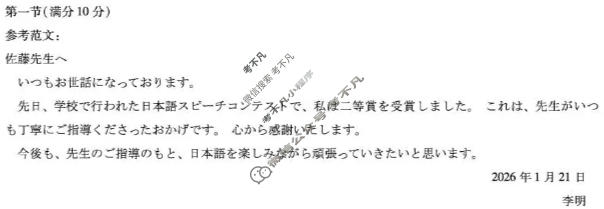 第一节(满分10分)
参考范文：
佐藤先生へ
いつもお世話になっております。
先日、学校で行われた日本語スピーチコンテストで、私は二等賞を受賞しました。 これは、先生がいつ
も丁寧にご指導くださったおかげです。 心から感謝いたします。
今後も、先生のご指導のもと、日本語を楽しみながら頑張っていきたいと思います。
2026年1月21日
李明
考不凡
微信搜索 考不凡
考不凡小程序
微信公众号考不凡